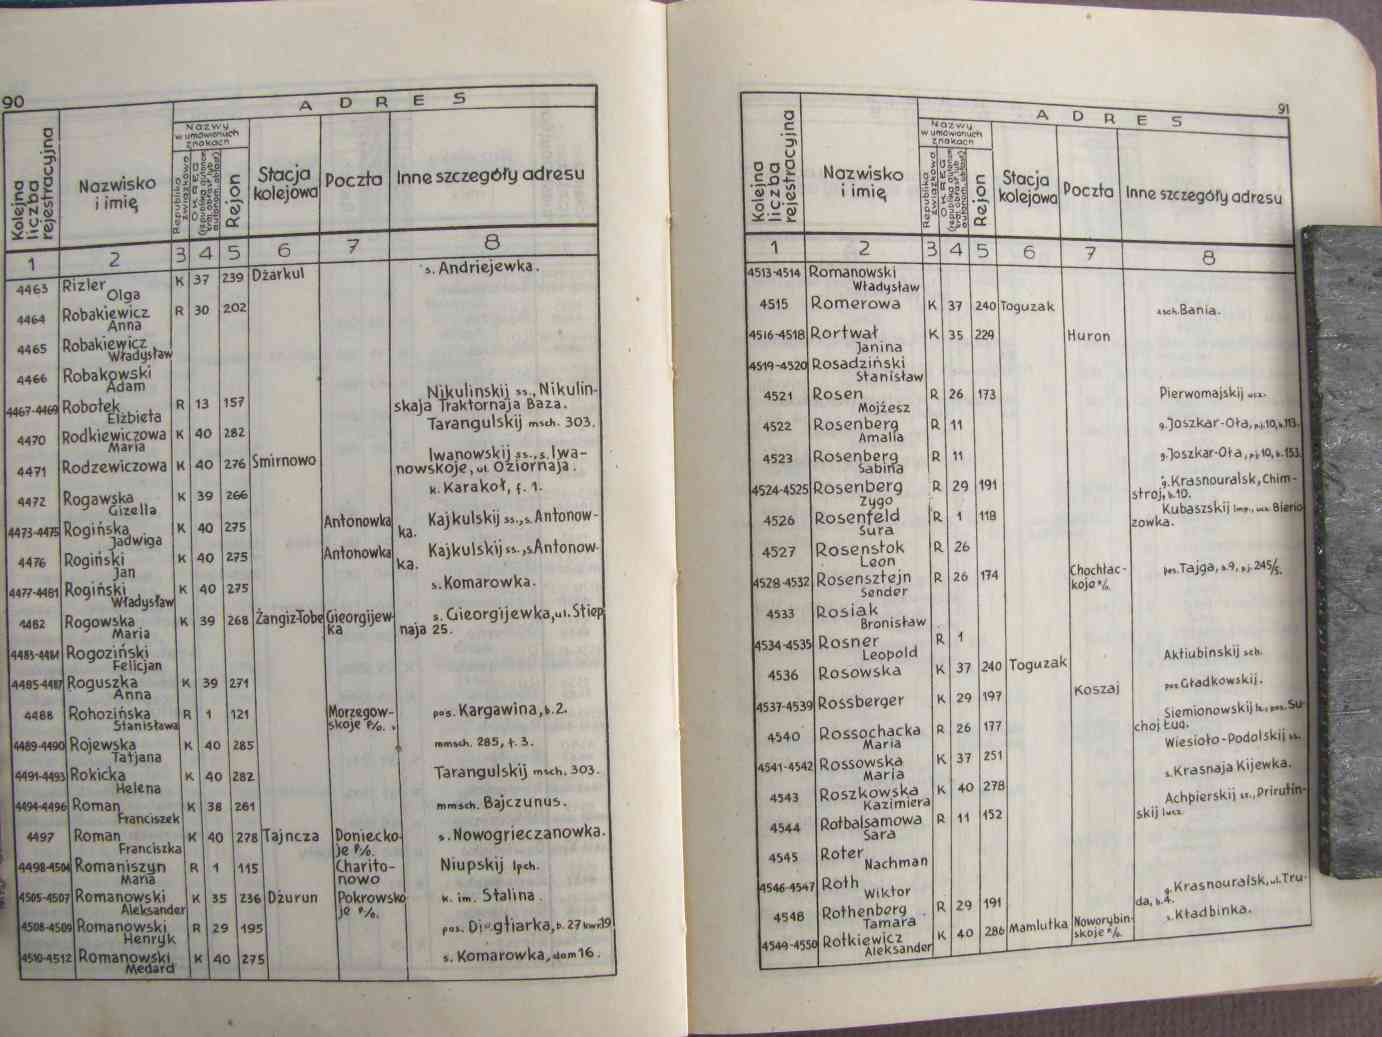 90
A D R E S
Kolejna liczba rejestracyjna
Nazwisko i imię
Nazwy w umówionych znakach
Republika związkowa
OKRĘG
Rejon
Stacja kolejowa
Poczta
Inne szczegóły adresu
1 2 3 4 5 6 7 8
4463 Rizler Olga K 37 239 Dżarkul s. Andriejewka.
4464 Robakiewicz Anna R 30 202
4465 Robakiewicz Władysław
4466 Robakowski Adam
4467-4469 Robotek Elżbieta R 13 157 Nikulinskij ss., Nikulin-
skaja Traktornaja Baza.
4470 Rodkiewiczowa Maria K 40 282 Tarangulskij msch. 303.
4471 Rodzewiczowa K 40 276 Smirnowo Iwanowskij ss., s. Iwa-
nowskoje, ul. Oziornaja.
4472 Rogawska Gizella K 39 266 k. Karakoł, f. 1.
4473-4475 Rogińska Jadwiga K 40 275 Antonowka Kajkulskij ss., s. Antonow-
ka.
4476 Rogiński Jan K 40 275 Antonowka Kajkulskij ss., s. Antonow-
ka.
4477-4481 Rogiński Władysław K 40 275 s. Komarowka.
4482 Rogowska Maria K 39 268 Żangiz-Tobe Gieorgijew-
ka s. Gieorgijewka, ul. Stiep
naja 25.
4483-4484 Rogoziński Felicjan
4485-4487 Roguszka Anna K 39 271
4488 Rohozińska Stanisława R 1 121 Morzegow-
skoje p/o. pos. Kargawina, b. 2.
4489-4490 Rojewska Tatjana K 40 285 mmsch. 285, f. 3.
4491-4493 Rokicka Helena K 40 282 Tarangulskij msch. 303.
4494-4496 Roman Franciszek K 38 261 mmsch. Bajczunus.
4497 Roman Franciszka K 40 278 Tajncza Doniecko-
je p/o. s. Nowogrieczanowka.
4498-4504 Romaniszyn Maria R 1 115 Charito-
nowo Niupskij lpch.
4505-4507 Romanowski Aleksander K 35 236 Dżurun Pokrowsko
je p/o. k. im. Stalina.
4508-4509 Romanowski Henryk R 29 195 pos. b. 27 kw. 19
4510-4512 Romanowski Medard K 40 275 s. Komarowka, dom 16.
91
A D R E S
Kolejna liczba rejestracyjna
Nazwisko i imię
Nazwy w umówionych znakach
Republika związkowa
OKRĘG
Rejon
Stacja kolejowa
Poczta
Inne szczegóły adresu
1 2 3 4 5 6 7 8
4513-4514 Romanowski Władysław
4515 Romerowa K 37 240 Toguzak Bania.
4516-4518 Rortwał Janina K 35 229 Huron
4519-4520 Rosadziński Stanisław
4521 Rosen Mojżesz R 26 173 Pierwomajskij ucz.
4522 Rosenberg Amalia R 11 g. Joszkar-Oła, pj. 10, b. 113.
4523 Rosenberg Sabina R 11 g. Joszkar-Oła, pj. 10, b. 153.
4524-4525 Rosenberg Zygo R 29 191 g. Krasnouralsk, Chim-
stroj, b. 10.
4526 Rosenfeld Sura R 1 118 Kubaszskij lmp., ucz. Bierio
zowka.
4527 Rosenstok Leon R 26
4528-4532 Rosensztejn Sender R 26 174 Chochłac-
koje p/o. pos. Tajga, b. 9, pj. 245/5.
4533 Rosiak Bronisław
4534-4535 Rosner Leopold R 1
4536 Rosowska K 37 240 Toguzak Aktiubinskij sch.
4537-4539 Rossberger K 29 197 Koszaj pos. Gładkowskij.
4540 Rossochacka Maria R 26 177 Siemionowskij pos. Su
choj Ług.
4541-4542 Rossowska Maria K 37 251 Wiesioło-Podolskij ss.
4543 Roszkowska Kazimiera K 40 278 s. Krasnaja Kijewka.
4544 Rotbalsamowa Sara R 11 152 Achpierskij sr., Prirutin-
skij lucz.
4545 Roter Nachman
4546-4547 Roth Wiktor
4548 Rothenberg Tamara R 29 191 g. Krasnouralsk, ul. Tru-
da, b. 4.
4549-4550 Rotkiewicz Aleksander K 40 286 Mamlutka Noworybin-
skoje p/o. s. Kładbinka.